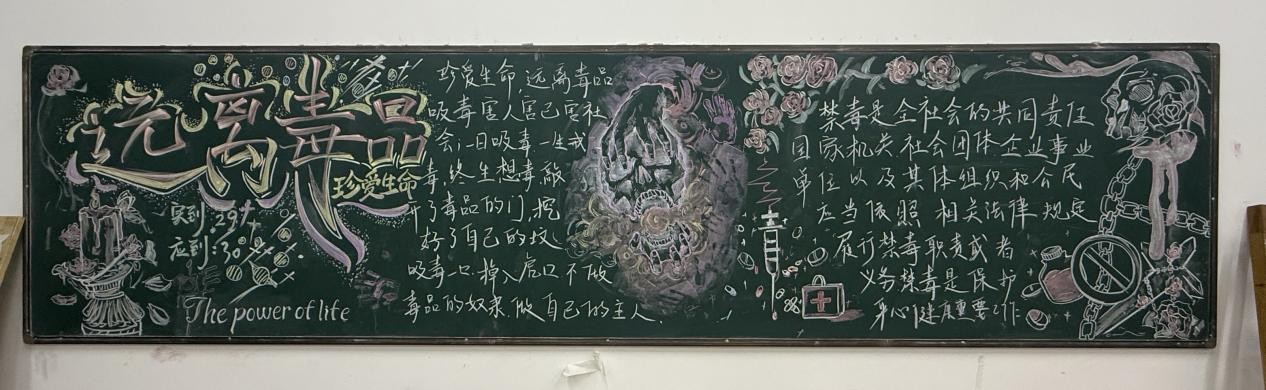 远离毒品
珍爱生命
实到:29人
应到:30人
The power of life
珍爱生命,远离毒品
吸毒害人害己害社
会;一日吸毒一生戒
毒,终生想毒,敲
开了毒品的门,挖
好了自己的坟
吸毒一口,掉入虎口不做
毒品的奴隶,做自己的主人.
禁毒是全社会的共同责任
国家机关社会团体企业事业
单位以及其体组织和公民
应当依照相关法律规定
履行禁毒职责或者
义务禁毒是保护
身心健康重要工作